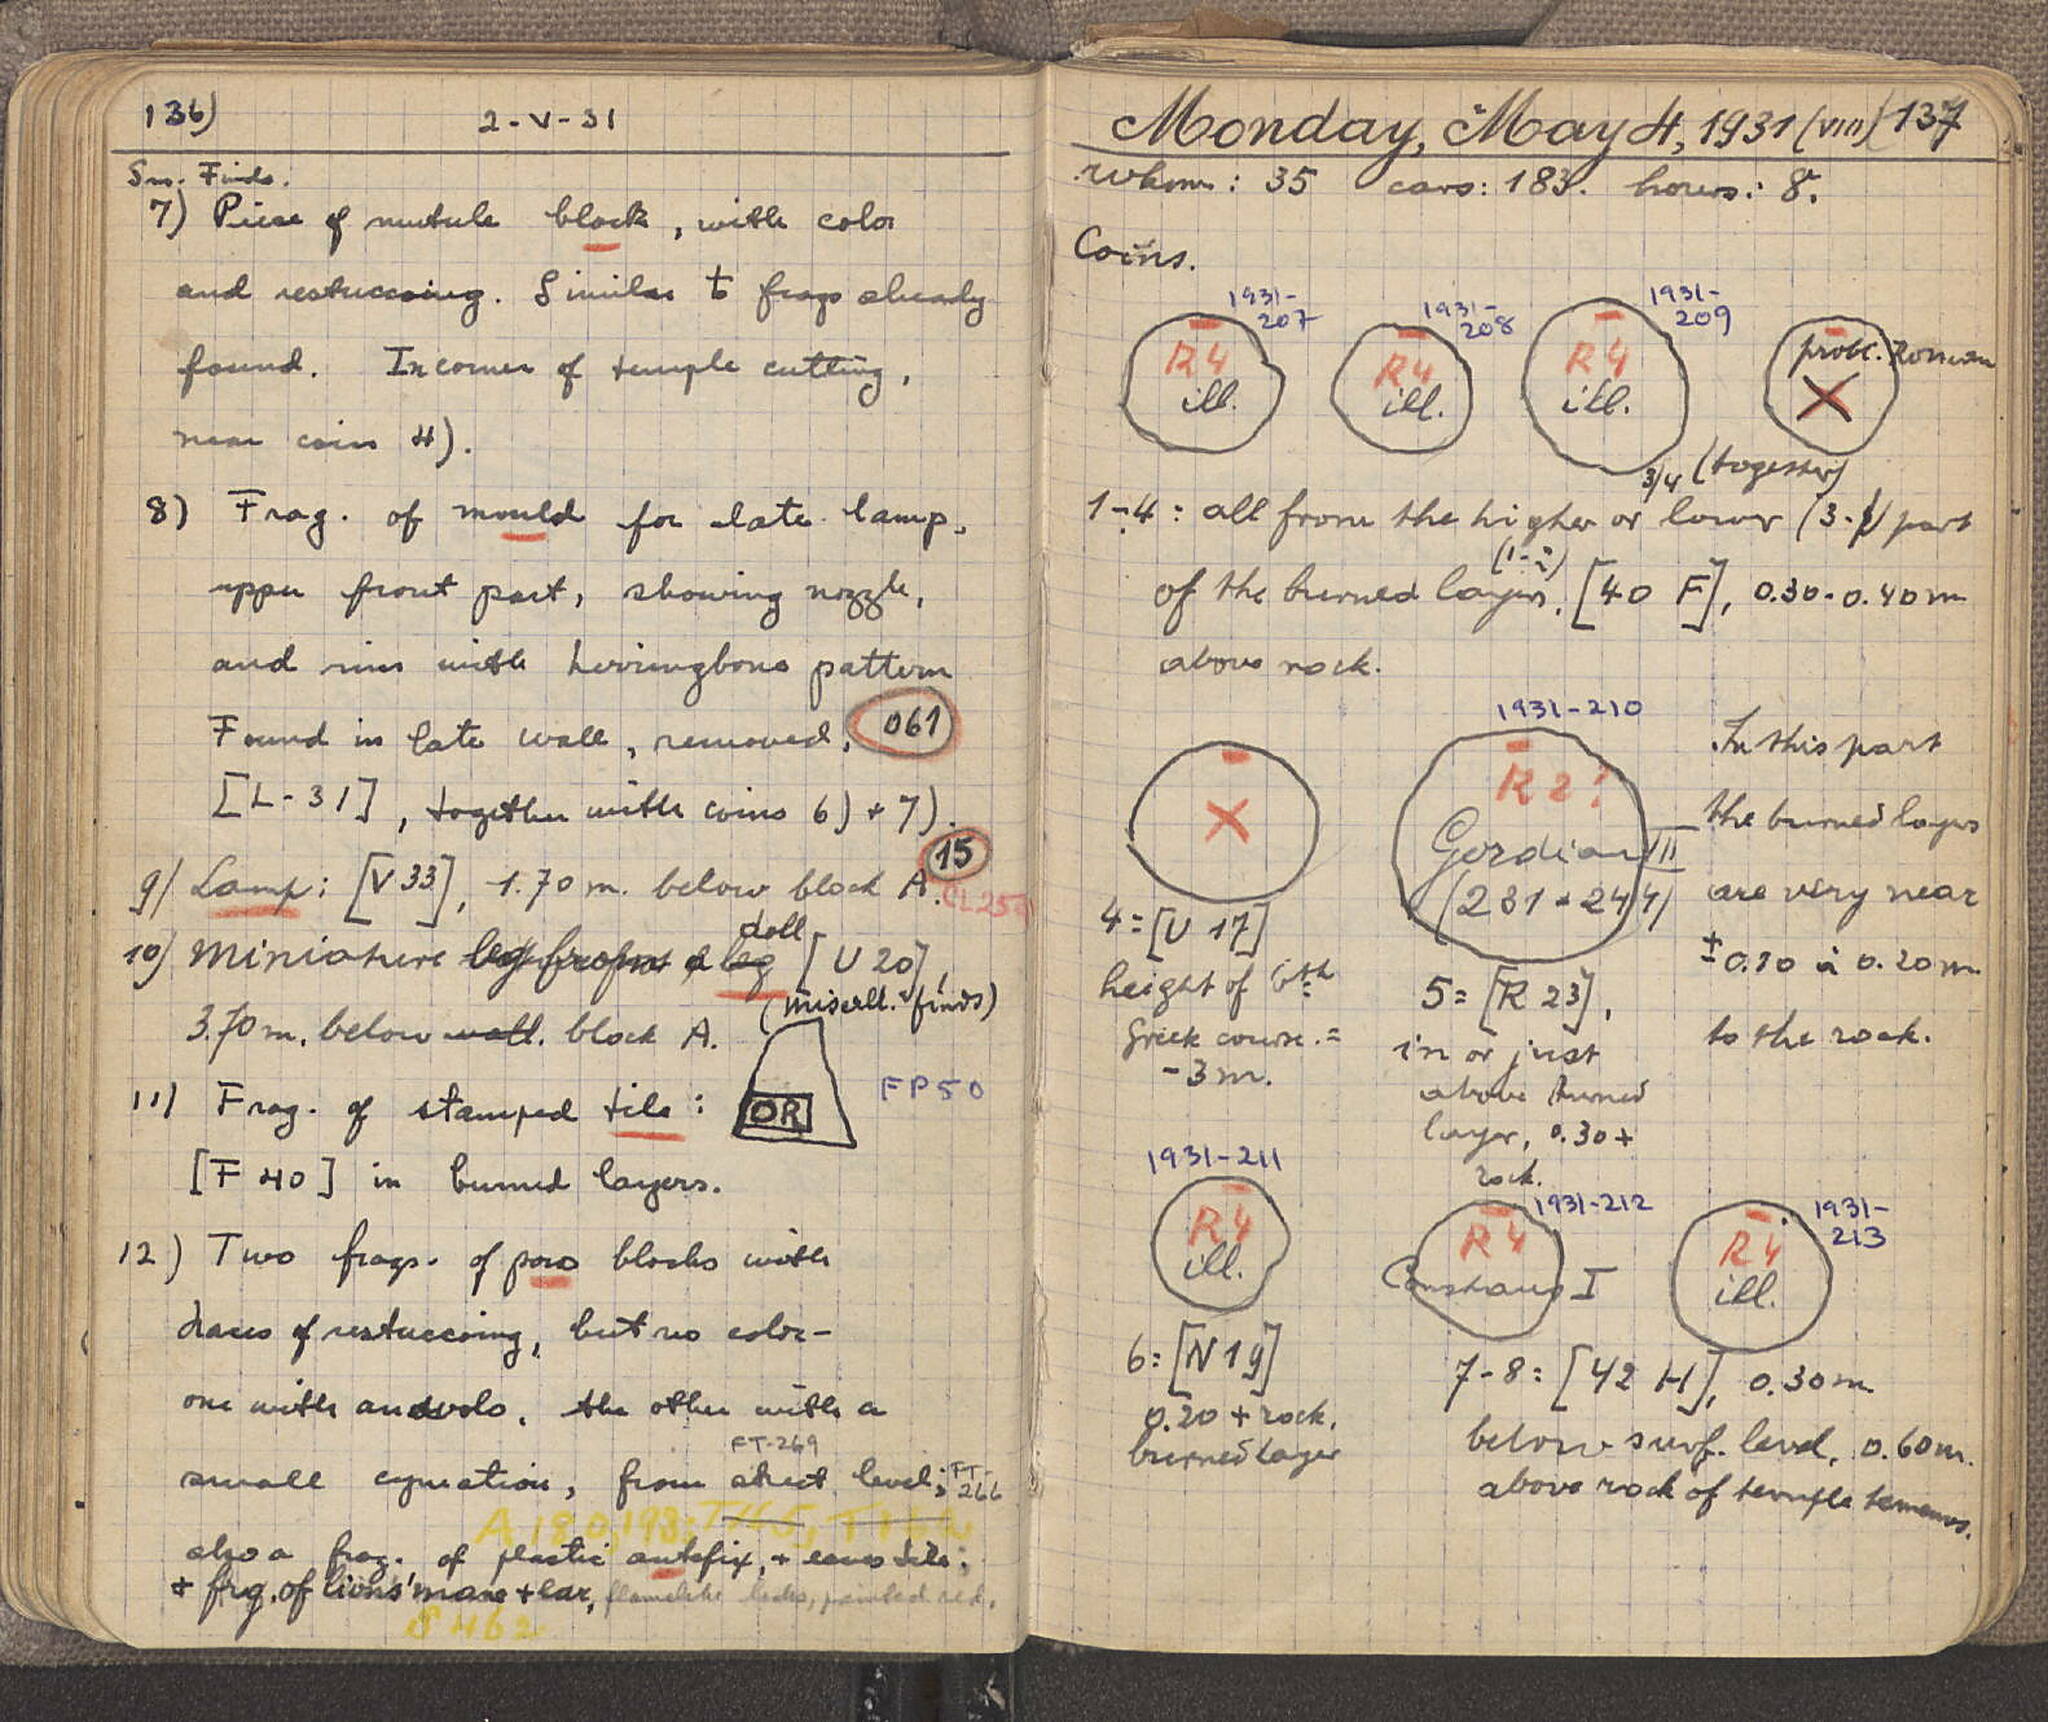 136)
2-V-31
Sm. Finds.
7) Piece of mutule block, with color
and restuccoing. Similar to frags already
found. In corner of temple cutting,
near coin 4).
8) Frag. of mould for late lamp,
upper front part, showing nozzle,
and rim with herringbone pattern
Found in late wall, removed, 061
[L-31], together with coins 6) + 7).
15
9) Lamp: [V 33], 1.70 m. below block A.
doll
10) Miniature leg [U 20],
(miscell. finds)
3.70 m. below wall. block A.
11) Frag. of stamped tile: OR FP50
[F 40] in burned layers.
12) Two frags. of poros blocks with
traces of restuccoing, but no color-
one with an ovolo, the other with a
FT-269
small cymation, from street level; FT-266
A 180, 193;
also a frag. of plastic antefix, + eaves tile;
+ frg. of lions' mane + ear, flamelike locks, painted red.
Monday, May 4, 1931 (VIII) 137
wkm: 35 cars: 183. hours: 8.
Coins.
1931-207
R 4
ill.
1931-208
R 4
ill.
1931-209
R 4
ill.
prob. Roman
X
3/4 (together)
1-4: all from the higher or lower (3-4) part
(1-2)
of the burned layers, [40 F], 0.30-0.40 m
above rock.
X
4 = [U 17]
height of 6th
Greek course. =
-3 m.
1931-210
R 2?
Gordian III
(231-244)
5 = [R 23],
in or just
above burned
layer, 0.30 +
rock.
In this part
the burned layers
are very near
± 0.10 à 0.20 m
to the rock.
1931-211
R 4
ill.
6 = [N 19]
0.20 + rock,
burned layer
1931-212
R 4
Constans I
1931-213
R 4
ill.
7-8 = [42 H], 0.30 m
below surf. level, 0.60 m.
above rock of temple temenos.